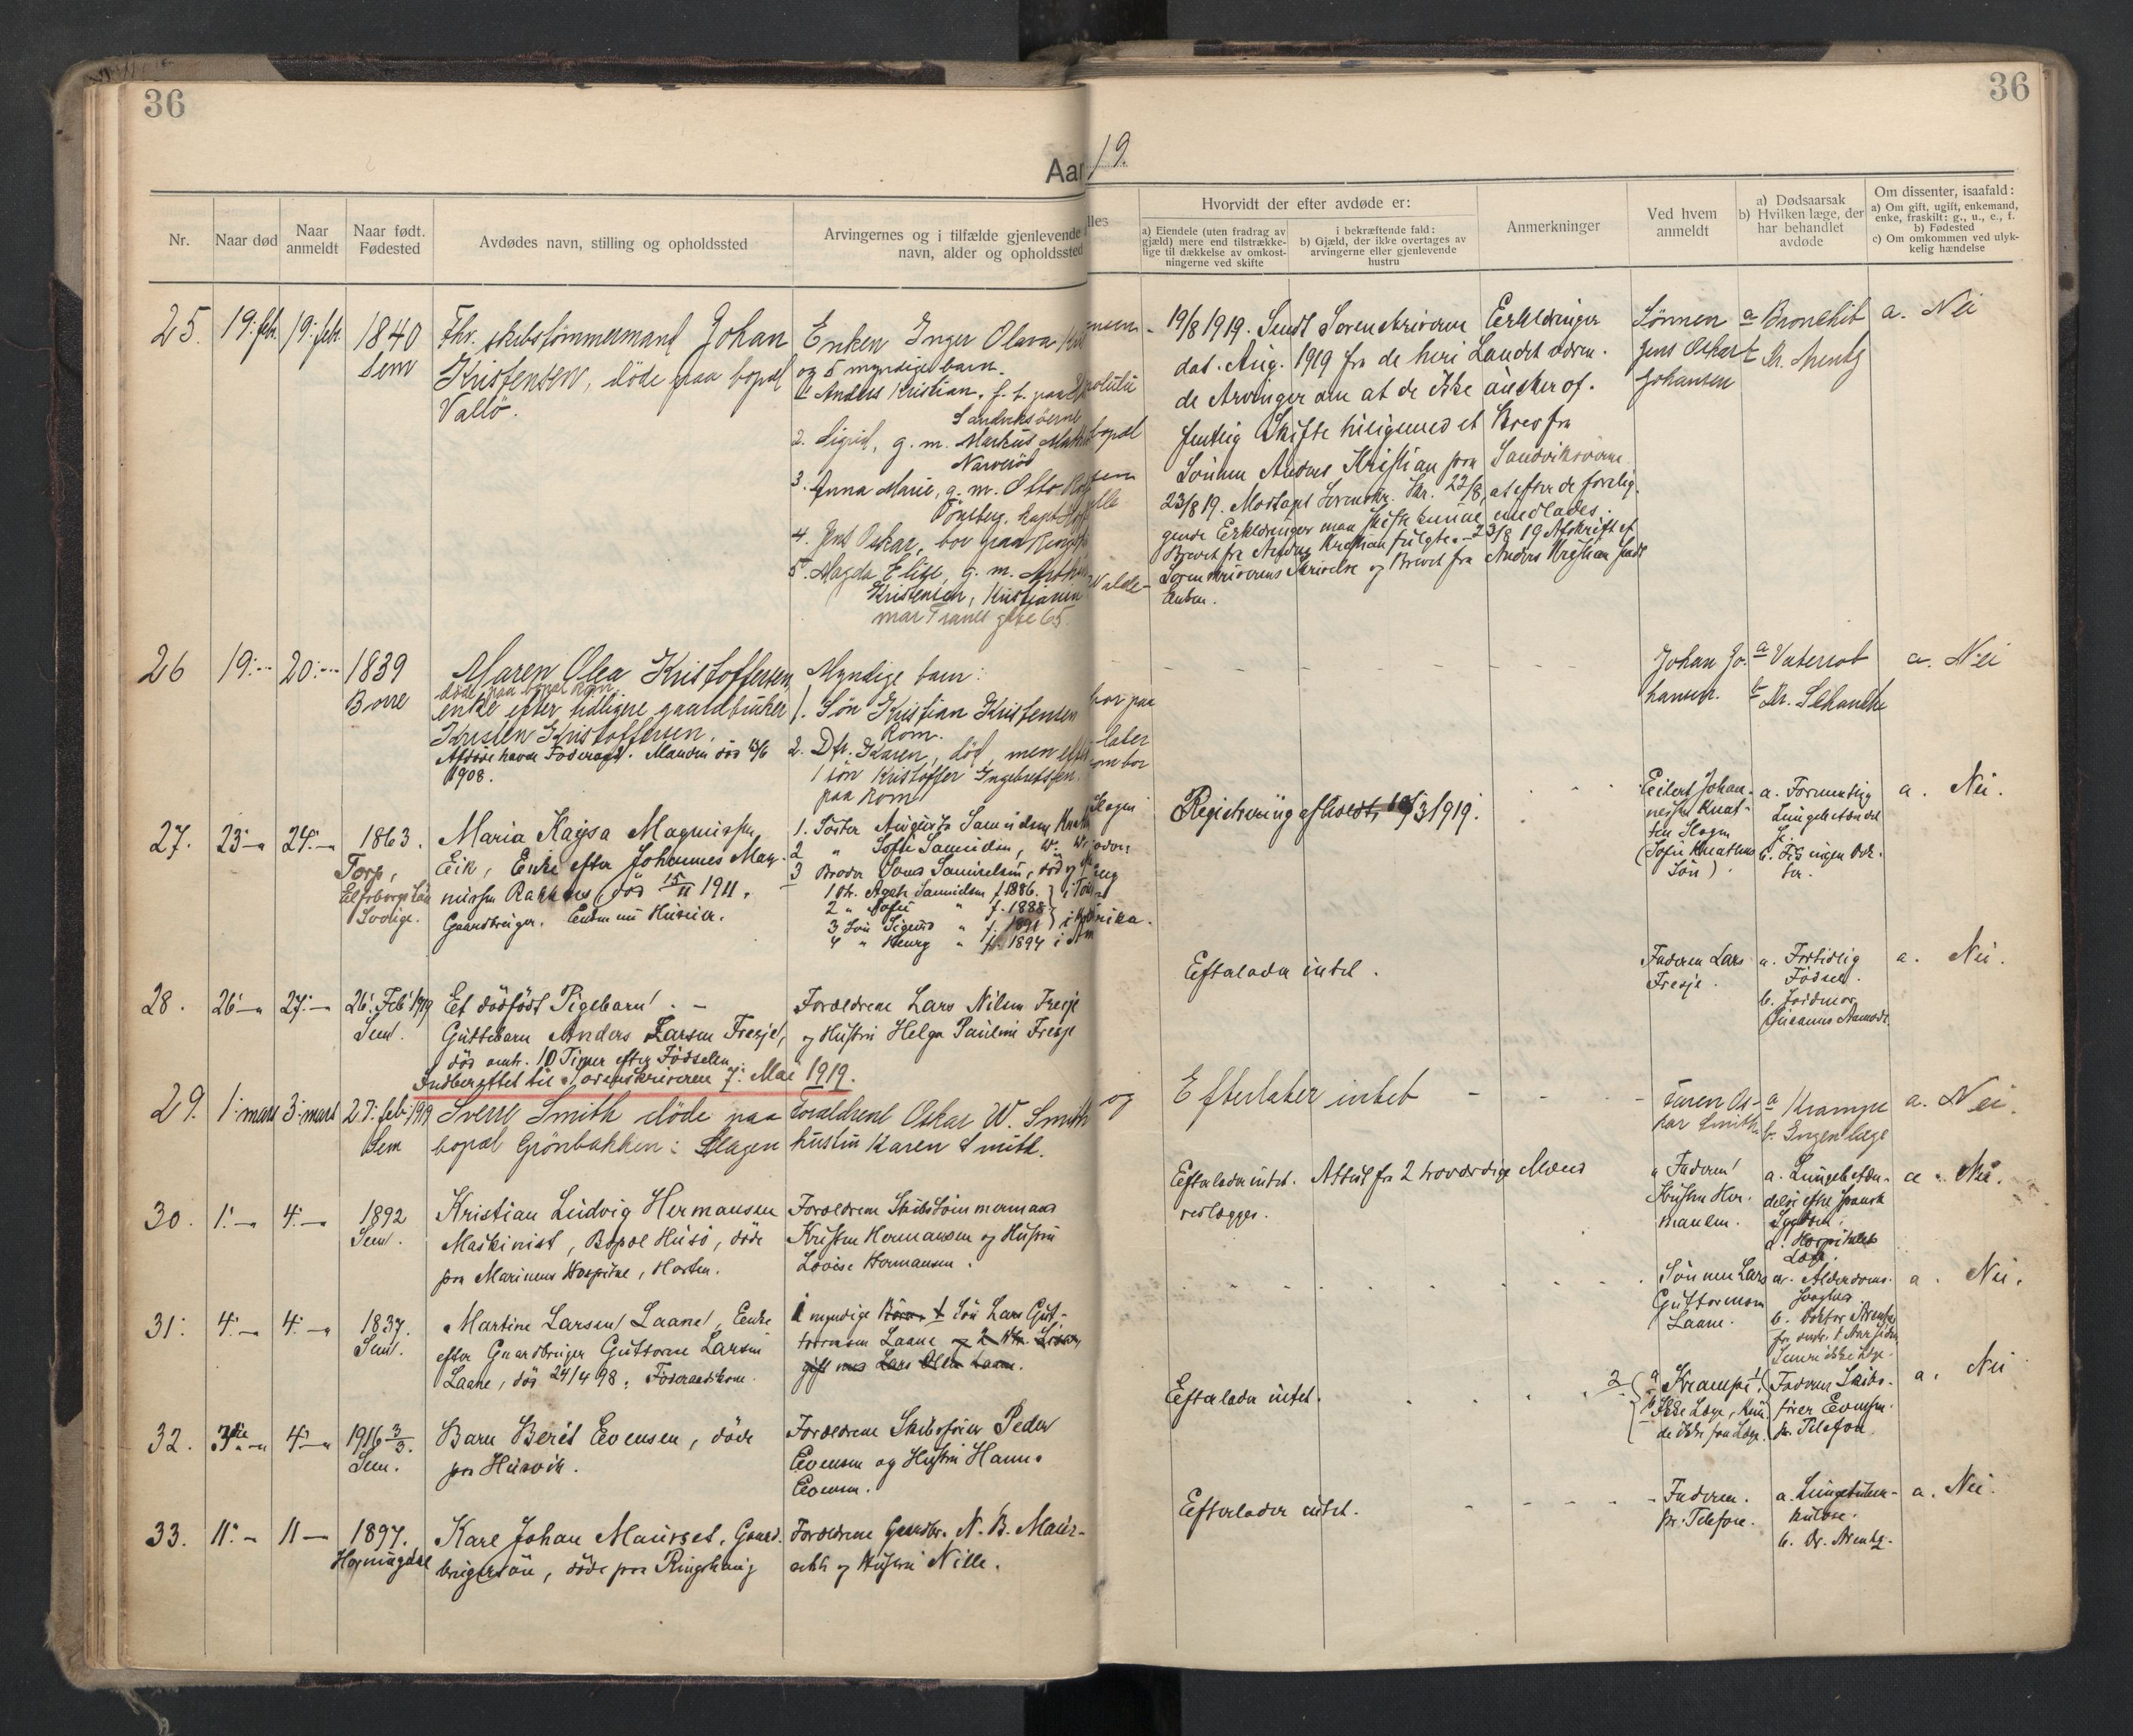 36
36
Aar 19.
Nr.
Naar død
Naar anmeldt
Naar født. Fødested
Avdødes navn, stilling og opholdssted
Arvingernes og i tilfælde gjenlevende
navn, alder og opholdssted
lles
Hvorvidt der efter avdøde er:
a) Eiendele (uten fradrag av
gjæld) mere end tilstrække-
lige til dækkelse av omkost-
ningerne ved skifte
i bekræftende fald:
b) Gjæld, der ikke overtages av
arvingerne eller gjenlevende
hustru
Anmerkninger
Ved hvem
anmeldt
a) Dødsaarsak
b) Hvilken læge, der
har behandlet
avdøde
Om dissenter, isaafald:
a) Om gift, ugift, enkemand,
enke, fraskilt: g., u., e., f.
b) Fødested
c) Om omkommen ved ulyk-
kelig hændelse
25. 19: feb. 19: feb. 1840
Sem
Fhv. skibstømmermand Johan
Kristensen, døde paa bopæl
Vallö.
Enken Inger Olava
og 5 myndige barn.
1. Anders Kristian, f. t. paa
Sandviksöerne
2. Sigrid, g. m. Markus
Narverød
3. Anna Marie, g. m. Otto
Tönsberg.
4. Jens Oskar, bor paa
5. Magda Elise, g. m.
Kristensen, Kristiania Walde-
mar Tranes gate 65.
19/8 1919. Sendt Sorenskriveren Erklæringer
dat. Aug. 1919 fra de heri Landet væren-
de Arvinger om at de ikke ønsker of-
fentlig Skifte tilligemed et Brev fra
Sönnen Anders Kristian paa Sandviksöerne.
23/8 19. Modtaget Sorenskr. Skr. 22/8, at efter de forelig-
gende Erklæringer maa Skifte kunne undlades.
Brevet fra Anders Kristian fulgte. - 23/8 19 Afskrift af
Sorenskriverens Skrivelse og Brevet fra Anders Kristian sendt
Enken.
Sönnen
Jens Oskar
Johansen
a Bronchit
b Dr. Arentz
a. Nei
26 19: 20: 1839
Borre
Maren Olea Kristoffersen,
døde paa bopæl Rom
enke efter tidligere gaardbruker
Kristen Kristoffersen.
Afdøde havde Föderaad. Manden död 13/6
1908.
Myndige barn:
1. Sön Kristian Kristensen bor paa
Rom.
2. Dtr. Karen, död, men efterlater
1 sön Kristoffer Ingebretsen, som bor
paa Rom
Johan Jo-
hansen.
a Vatersot
b Dr. Schanche
a. Nei
27. 23 24 1863.
Torp,
Elfsborgs Län
Sverige.
Maria Kajsa Magnussen,
Eik, Enke efter Johannes Mag-
nussen död 15/11 1911.
Gaardbruger.
1. Söster Augusta Samuelsen
2 " Sofie Samuelsen,
3 Broder Samuelsen, död og
1 Dtr. Agate Samuelsen f. 1886.
2 " Sofie " f. 1888
3 Sön Sigurd " f. 1891
4 " Henry " f. 1894 i Amerika.
Registrering afholdt 3 1919.
Eilert Johan-
nessen Knat-
ten Slagen
(Sofie Knattens
Sön)
a. Formentlig
Lungebetændel
se.
b. ingen Dok-
tor.
a. Nei.
28. 26 27 26. Feb. 1919
Sem.
Et dödfödt Pigebarn! -
Guttebarn Anders Larsen Fresje,
död omtr. 10 Timer efter Födselen.
Indberettet til Sorenskriveren 7. Mai 1919.
Forældrene Lars Nilsen Fresje
og Hustru Helga Pauline Fresje
Efterlader intet.
Faderen Lars
Fresje.
a. Fortidlig
Födsel.
b. Jordmor
a. Nei.
29. 1. mars 3. mars 27. feb. 1919
Sem
Sverre Smith døde paa
bopæl Grönbakken i Slagen
Foreldrene Oskar W. Smith og
hustru Karen Smith.
Efterlater intet
Faren Os-
kar Smith
a Krampe
b. Ingen læge
a. Nei.
30. 1. 4. 1892
Sem.
Kristian Ludvig Hermansen
Maskinist, Bopæl Husö, döde
paa Marinens Hospital, Horten.
Forældrene Skibstömmermand
Kristen Hermansen og Hustru
Lovise Hermansen.
Efterlader intet. Attest fra 2 troværdige Mænd
vedlægges.
Faderen
Kristen Her-
mansen.
a. Lungebetæn-
delse efter spansk
Sygdom.
b. Hospitalets
Læge.
a. Nei.
31. 4. 4. 1837.
Sem.
Martine Larsen Laane, Enke
efter Gaardbruger Guttorm Larsen
Laane, död 24/4 98. Föderaadskone.
1 myndige Börn: 1 Sön Lars Gut-
tormsen Laane og 1 Dtr.
gift med Lars Olsen Laane.
Sönnen Lars
Guttormsen
Laane.
a. Alderdoms-
svaghed
b. Doktor Arentz
for omtr. 1 Aar siden
Senere ikke Læge.
a. Nei.
32. 3die 4. 1916 3/3.
Sem.
Barn Berit Evensen, döde
paa Husvik.
Forældrene Skibsförer Peder
Evensen og Hustru Hanna
Evensen.
Efterlader intet.
2 a Krampe
b. Ikke Læge, kun-
de ikke faa Læge.
1 Faderen Skibs-
förer Evensen.
pr. Telefon.
a. Nei
33. 11. 11 1897.
Hornindal
Karl Johan Maurset, Gaard-
brugersön, döde paa Ringshaug
Forældrene Gaardbr. N. B. Maur-
set og Hustru Nille.
Efterlader intet.
Faderen.
pr. Telefon.
a. Lungetuber-
kulose.
b. Dr. Arentz.
a. Nei.